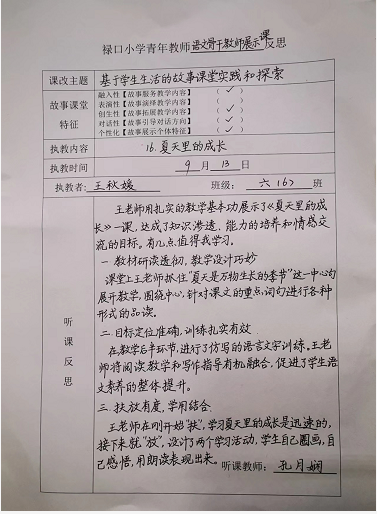 禄口小学青年教师语文骨干教师展示课反思
课改主题 基于学生生活的故事课堂实践和探索
故事课堂特征
融入性【故事服务教学内容】 （ ✓ ）
表演性【故事演绎教学内容】 （ ）
创生性【故事拓展教学内容】 （ ✓ ）
对话性【故事引导对话方向】 （ ✓ ）
个性化【故事展示个体特征】 （ ✓ ）
执教内容 16.夏天里的成长
执教时间 9 月 13 日
执教者：王秋媛 班级：六(6) 班
听课反思
王老师用扎实的教学基本功展示了《夏天里的成
长》一课，达成了知识渗透、能力的培养和情感交
流的目标。有几点值得我学习。
一 教材研读透彻，教学设计巧妙
课堂上王老师抓住“夏天是万物生长的季节”这一中心句
展开教学，围绕中心，针对课文的重点词句进行各种
形式的品读。
二.目标定位准确，训练扎实有效
在教学后半环节，进行了仿写的语言文字训练。王老
师将阅读教学和写作指导有机融合，促进了学生语
文素养的整体提升。
三.扶放有度，学用结合.
王老师在刚开始“扶”，学习夏天里的成长是迅速的，
接下来就“放”，设计了两个学习活动，学生自己圈画，自
己感悟，用朗读表现出来。
听课教师：孔月娴